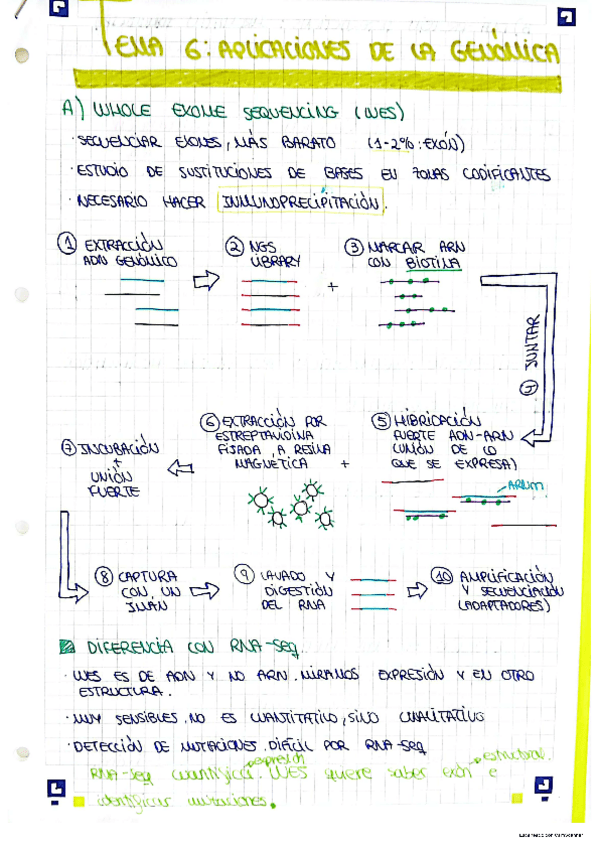 TEMA 6: APLICACIONES DE LA GENÓMICA
A) WHOLE EXOME SEQUENCING (WES)
· SECUENCIAR EXONES, MÁS BARATO (1-2% : EXÓN)
· ESTUDIO DE SUSTITUCIONES DE BASES EN ZONAS CODIFICANTES
· NECESARIO HACER INMUNOPRECIPITACIÓN.
① EXTRACCIÓN
ADN GENÓMICO
② NGS
LIBRARY
+
③ MARCAR ARN
CON BIOTINA
④ JUNTAR
⑤ HIBRIDACIÓN
FUERTE ADN-ARN
(UNIÓN DE LO
QUE SE EXPRESA)
ARNm
+
⑥ EXTRACCIÓN POR
ESTREPTAVIDINA
FIJADA A RESINA
MAGNÉTICA
⑦ INCUBACIÓN
+
UNIÓN
FUERTE
⑧ CAPTURA
CON UN
IMÁN
⑨ LAVADO Y
DIGESTIÓN
DEL RNA
⑩ AMPLIFICACIÓN
Y SECUENCIACIÓN
(ADAPTADORES)
DIFERENCIA CON RNA-seq
· WES ES DE ADN Y NO ARN. MIRAMOS EXPRESIÓN Y EN OTRO
ESTRUCTURA.
· MUY SENSIBLES. NO ES CUANTITATIVO, SINO CUALITATIVO
· DETECCIÓN DE MUTACIONES DIFÍCIL POR RNA-seq
RNA-seq cuantifica expresión. WES quiere saber exón e estructural
identificar mutaciones.